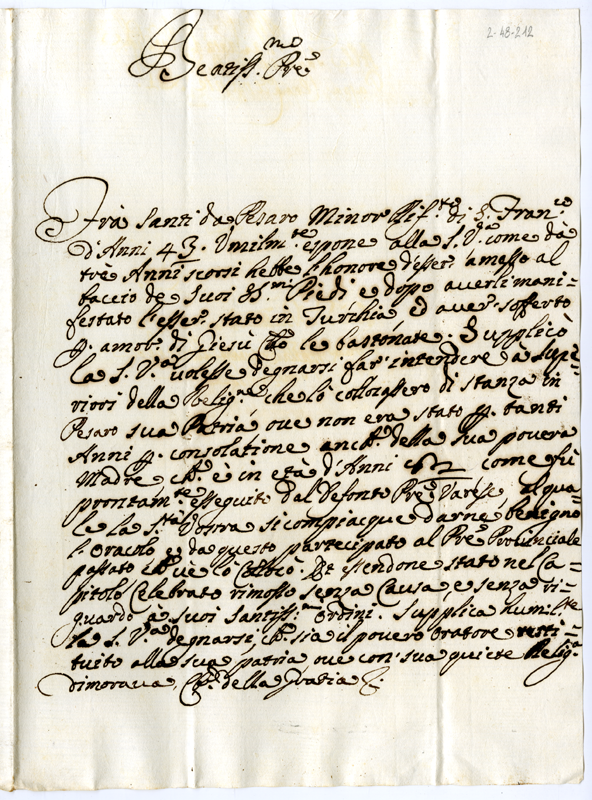 2-48-212
Beatiss.mo Pre
Frà Santi da Pesaro Minor Osser.te di S. Fran.co
d'Anni 43. Umilm.te espone alla S.V.ra come dà
trè Anni scorsi hebbe l'honore d'esser' amesso al
baccio de Suoi SS.mi Piedi e dopo averli mani=
festato l'esser' stato in Turchia ed aver' sofferto
p. amor' di Giesù Xpo le bastonate. Supplicò
la S.V.ra volesse degnarsi far' intendere à Supe=
riori della Relig.ne che lo collocassero di stanza in
Pesaro sua Patria ove non era stato p. tanti
Anni p. consolatione anch. della sua povera
Madre ch. è in età d'Anni come fù
prontam.te esseguito dal Defonto Pre Varese, al qua=
le la S.tà Vostra si compiacque darne benegno
l'oracolo e da questo partecipato al Pre Provinciale
passato ch. ve lo collocò. Et essendone stato nel Ca=
pitolo Celebrato rimosso senza Causa, e senza ri=
guardo à suoi Santiss.mi ordini. Supplica humil.te
la S.V.ra degnarsi, ch. sia il povero Oratore resti=
tuito alla sua patria ove con sua quiete Relig.a
dimorava, Ch. della Gratia &.